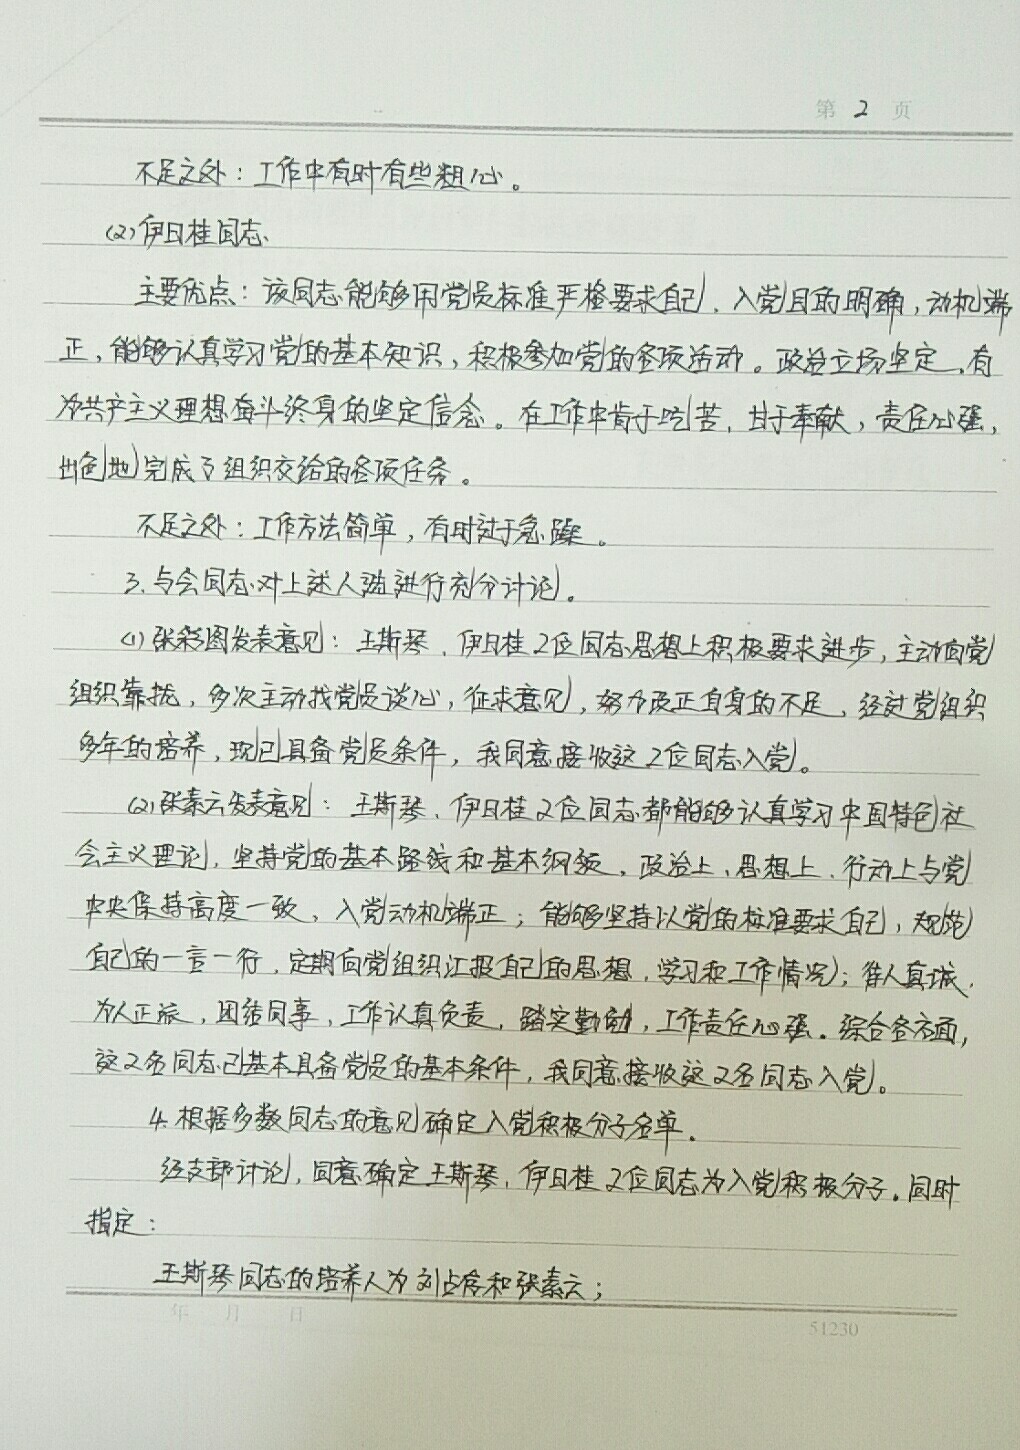 第 2 页
不足之处：工作中有时有些粗心。
(2)伊日桂同志
主要优点：该同志能够用党员标准严格要求自己，入党目的明确，动机端
正，能够认真学习党的基本知识，积极参加党的各项活动。政治立场坚定，有
为共产主义理想奋斗终身的坚定信念。在工作中肯于吃苦，甘于奉献，责任心强，
出色地完成了组织交给的各项任务。
不足之处：工作方法简单，有时过于急躁。
3、与会同志对上述人选进行充分讨论。
(1)张彩图发表意见：王斯琴、伊日桂2位同志思想上积极要求进步，主动向党
组织靠拢，多次主动找党员谈心，征求意见，努力改正自身的不足，经过党组织
多年的培养，现已具备党员条件，我同意接收这2位同志入党。
(2)张素云发表意见：王斯琴、伊日桂2位同志都能够认真学习中国特色社
会主义理论，坚持党的基本路线和基本纲领，政治上、思想上、行动上与党
中央保持高度一致，入党动机端正；能够坚持以党的标准要求自己，规范
自己的一言一行，定期向党组织汇报自己的思想，学习和工作情况；待人真诚，
为人正派，团结同事，工作认真负责，踏实勤勉，工作责任心强。综合各方面，
这2名同志已基本具备党员的基本条件，我同意接收这2名同志入党。
4、根据多数同志的意见确定入党积极分子名单。
经支部讨论，同意确定王斯琴、伊日桂2位同志为入党积极分子。同时
指定：
王斯琴同志的培养人为刘占存和张素云；
年 月 日
51230